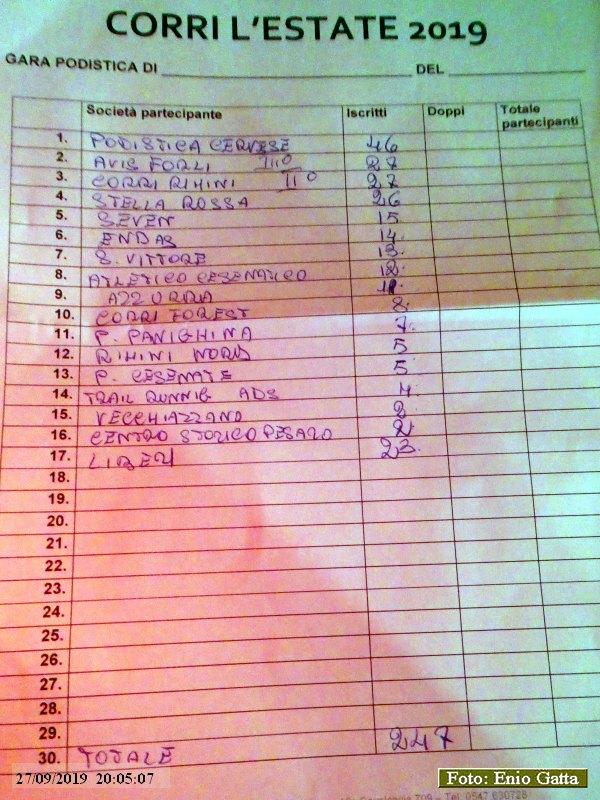 CORRI L'ESTATE 2019
GARA PODISTICA DI ____ DEL ____
Società partecipante Iscritti Doppi Totale partecipanti
1. PODISTICA CERVESE 46
2. AVIS FORLI II° 27
3. CORRI RIMINI II° 27
4. STELLA ROSSA 26
5. SEVEN 15
6. ENDAS 14
7. S. VITTORE 13
8. ATLETICO CESENATICO 12
9. AZZURRA
10. CORRI FOREST 8
11. P. PANIGHINA 7
12. RIMINI NORD 5
13. P. CESENATE 5
14. TRAIL RUNNIG ADS 4
15. VECCHIAZZANO
16. CENTRO STORICO PESARO 2
17. LIBERI 23
18.
19.
20.
21.
22.
23.
24.
25.
26.
27.
28.
29.
30. TOTALE 247
27/09/2019 20:05:07
Foto: Enio Gatta
709 - Tel. 0547 630728